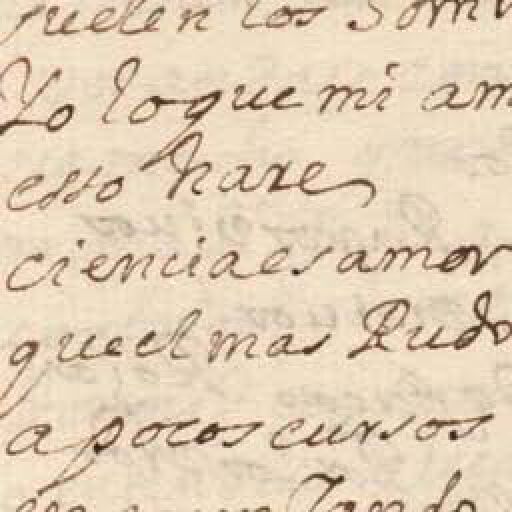 suelen los
Yo lo que mi am
esso hare
ciencia es amor
que el mas Rudo
a pocos cursos